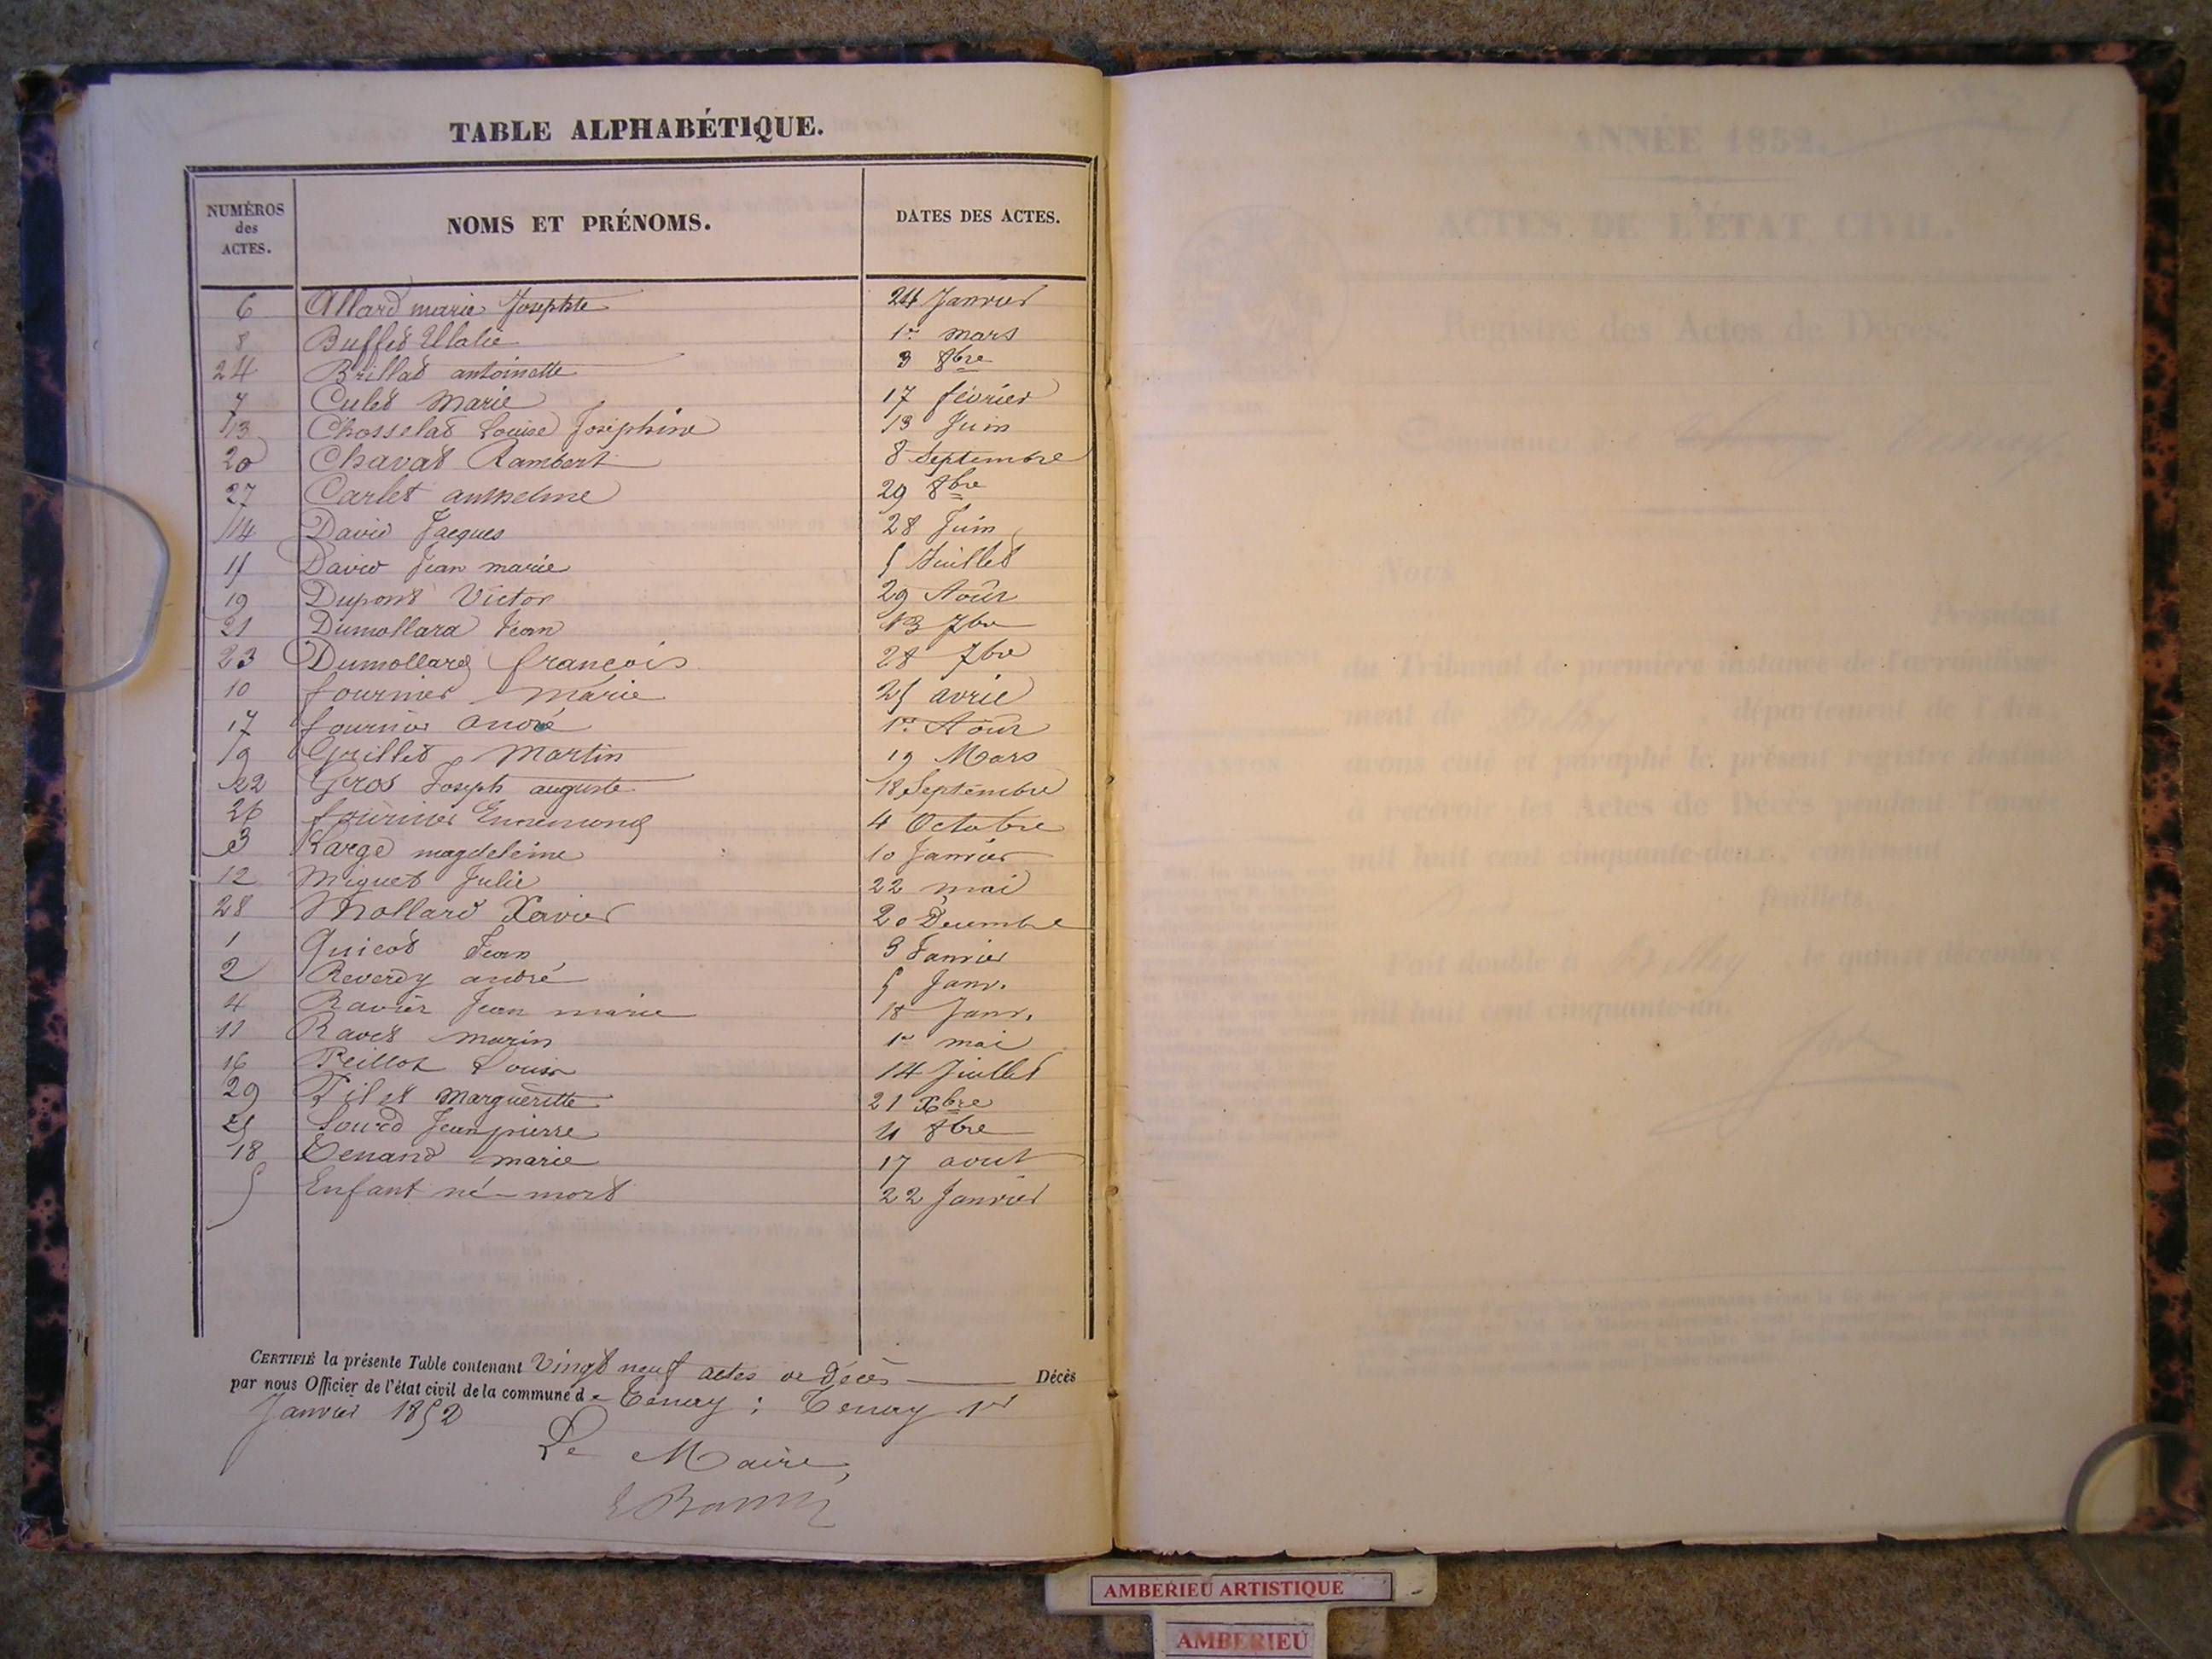 TABLE ALPHABÉTIQUE.
NUMÉROS des ACTES. NOMS ET PRÉNOMS. DATES DES ACTES.
6 Allard marie Josephte 24 Janvier
8 Buffet Ulalie 1er mars
24 Brillat antoinette 3 8bre
7 Culet Marie 17 février
13 Chosselat Louise Joséphine 13 Juin
20 Chavat Rambert 8 Septembre
27 Carlet anthelme 29 8bre
14 David Jacques 28 Juin
15 David Jean marie 5 Juillet
19 Dupont Victor 29 Août
21 Dumollard Jean 13 7bre
23 Dumollard françois 28 7bre
10 fournier Marie 25 avril
17 fournier André 1er Août
9 Grillet Martin 19 Mars
22 Gros Joseph auguste 18 Septembre
26 fournier Ennemond 4 Octobre
3 Large magdeleine 10 Janvier
12 Miguet Julie 22 mai
28 Mollard Xavier 20 Décembre
1 Quicot Jean 3 Janvier
2 Reverdy andré 5 Janv.
4 Ravier Jean marie 18 Janv.
11 Ravet marin 1er mai
16 Peillot Louis 14 Juillet
29 Marguéritte 21 Xbre
25 Sourd Jean pierre 4 8bre
18 Tenand marie 17 aout
5 Enfant né-mort 22 Janvier
CERTIFIÉ la présente Table contenant Vingt neuf actes de décès Décès
par nous Officier de l'état civil de la commune de Tenay ; Tenay 1er
Janvier 1852
Le Maire,
ANNÉE 1852.
ACTES DE L'ÉTAT CIVIL.
Registre des Actes de Décès.
Commune de Tenay
Nous
Président
du Tribunal de première instance de l'arrondisse-
ment de Belley département de l'Ain
avons coté et paraphé le présent registre destiné
à recevoir les Actes de Décès pendant l'année
mil huit cent cinquante-deux, contenant
feuillets.
Fait double à Belley, le quinze décembre
mil huit cent cinquante-un.
AMBERIEU ARTISTIQUE
AMBERIEU